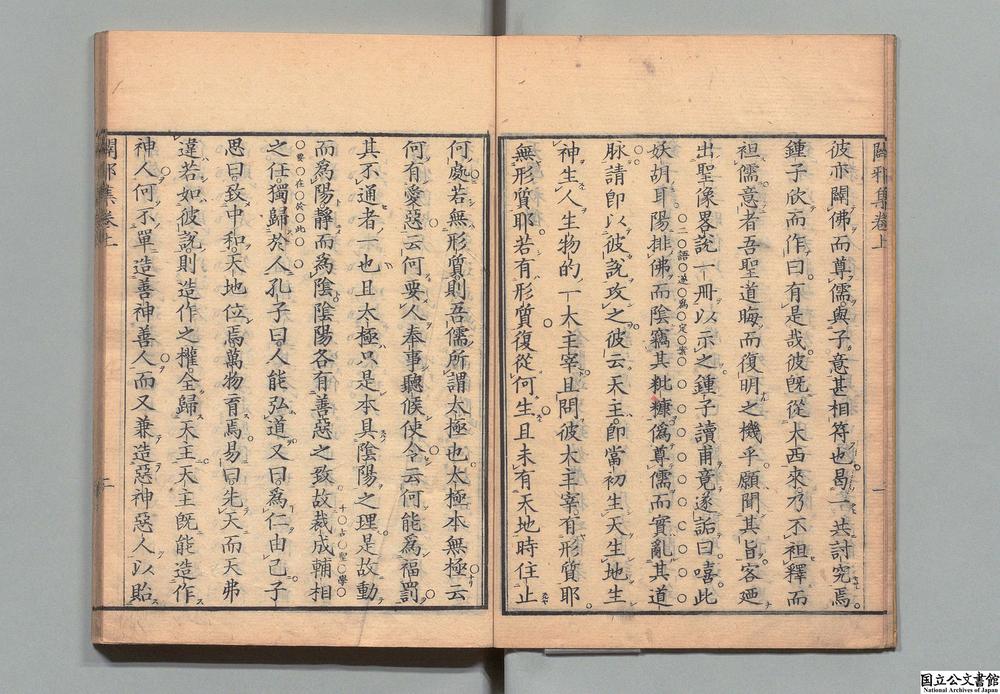 闢邪集卷上
彼亦闢佛而尊儒與子意甚相符也曷一共討究焉
鍾子欣而作曰有是哉彼既從大西來乃不袒釋而
袒儒意者吾聖道晦而復明之機乎願聞其旨客廼
出聖像畧說一冊以示之鍾子讀甫竟遂詬曰嘻此
妖胡耳陽排佛而陰竊其粃糠偽尊儒而實亂其道
脉請即以彼說攻之彼云天主即當初生天生地生
神生人生物的一大主宰且問彼大主宰有形質耶
無形質耶若有形質復從何生且未有天地時住止
何處若無形質則吾儒所謂太極也太極本無極云
何有愛惡云何要人奉事聽候使令云何能為福罰
其不通者一也且太極只是本具陰陽之理是故動
而為陽靜而為陰陰陽各有善惡之致故裁成輔相
之任獨歸於人孔子曰人能弘道又曰為仁由己子
思曰致中和天地位焉萬物育焉易曰先天而天弗
違若如彼說則造作之權全歸天主天主既能造作
神人何不單造善神善人而又兼造惡神惡人以貽
闢邪集卷上
国立公文書館
National Archives of Japan